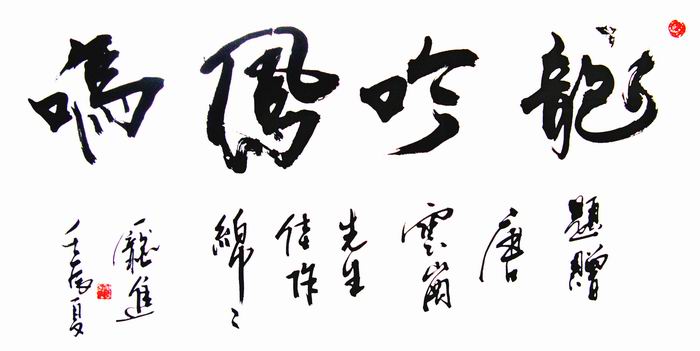 龍吟鳳鳴
題贈
唐
雲崗
先生
佳作
綿〻
龐進
壬辰夏